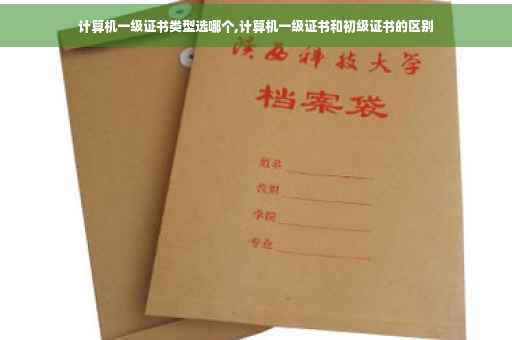 计算机一级证书类型选哪个,计算机一级证书和初级证书的区别
陕西科技大学
档案袋
学院
专业